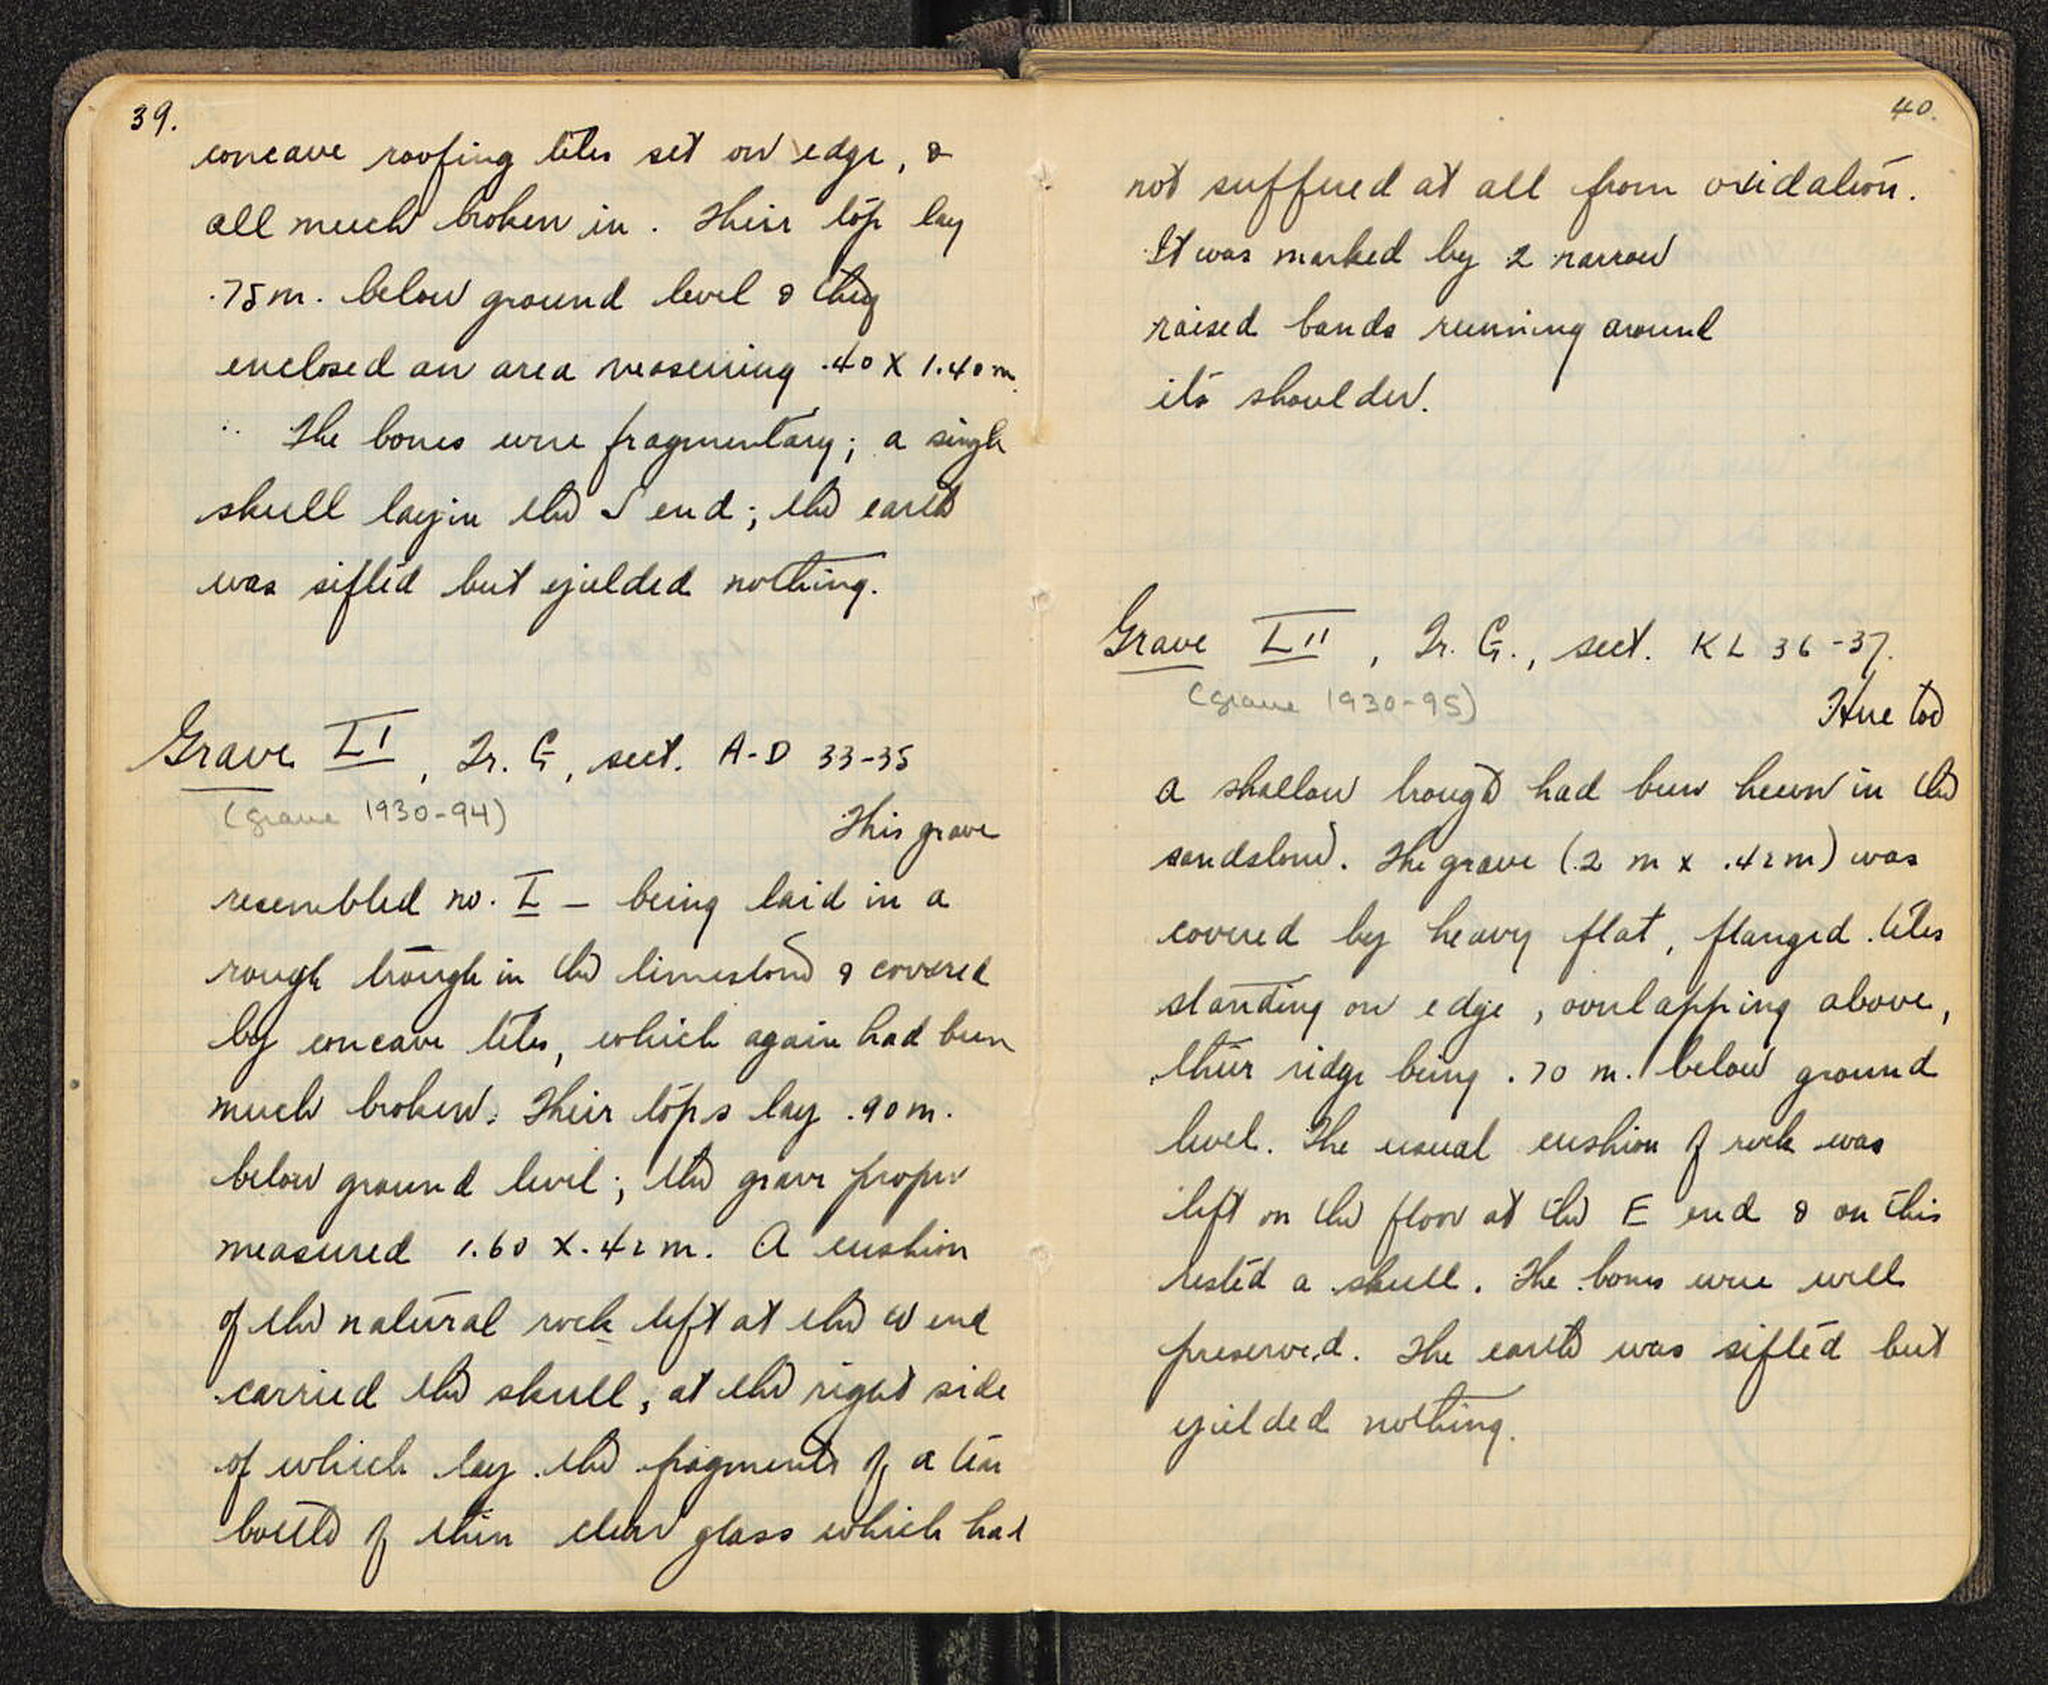 39.
concave roofing tiles set on edge, &
all much broken in. Their top lay
.75 m. below ground level & they
enclosed an area measuring .40 x 1.40 m.
The bones were fragmentary; a single
skull lay in the S end; the earth
was sifted but yielded nothing.
Grave LI, Tr. G, sect. A-D 33-35
(grave 1930-94)
This grave
resembled no. L - being laid in a
rough trough in the limestone & covered
by concave tiles, which again had been
much broken. Their tops lay .90 m.
below ground level; the grave proper
measured 1.60 x .42 m. A cushion
of the natural rock left at the W end
carried the skull, at the right side
of which lay the fragments of a tear
bottle of thin clear glass which had
40.
not suffered at all from oxidation.
It was marked by 2 narrow
raised bands running around
its shoulder.
Grave LII, Tr. G., sect. KL 36-37.
(grave 1930-95)
Here too
a shallow trough had been hewn in the
sandstone. The grave (.2 m x .42 m) was
covered by heavy flat, flanged tiles
standing on edge, overlapping above,
their ridge being .70 m. below ground
level. The usual cushion of rock was
left on the floor at the E end & on this
rested a skull. The bones were well
preserved. The earth was sifted but
yielded nothing.